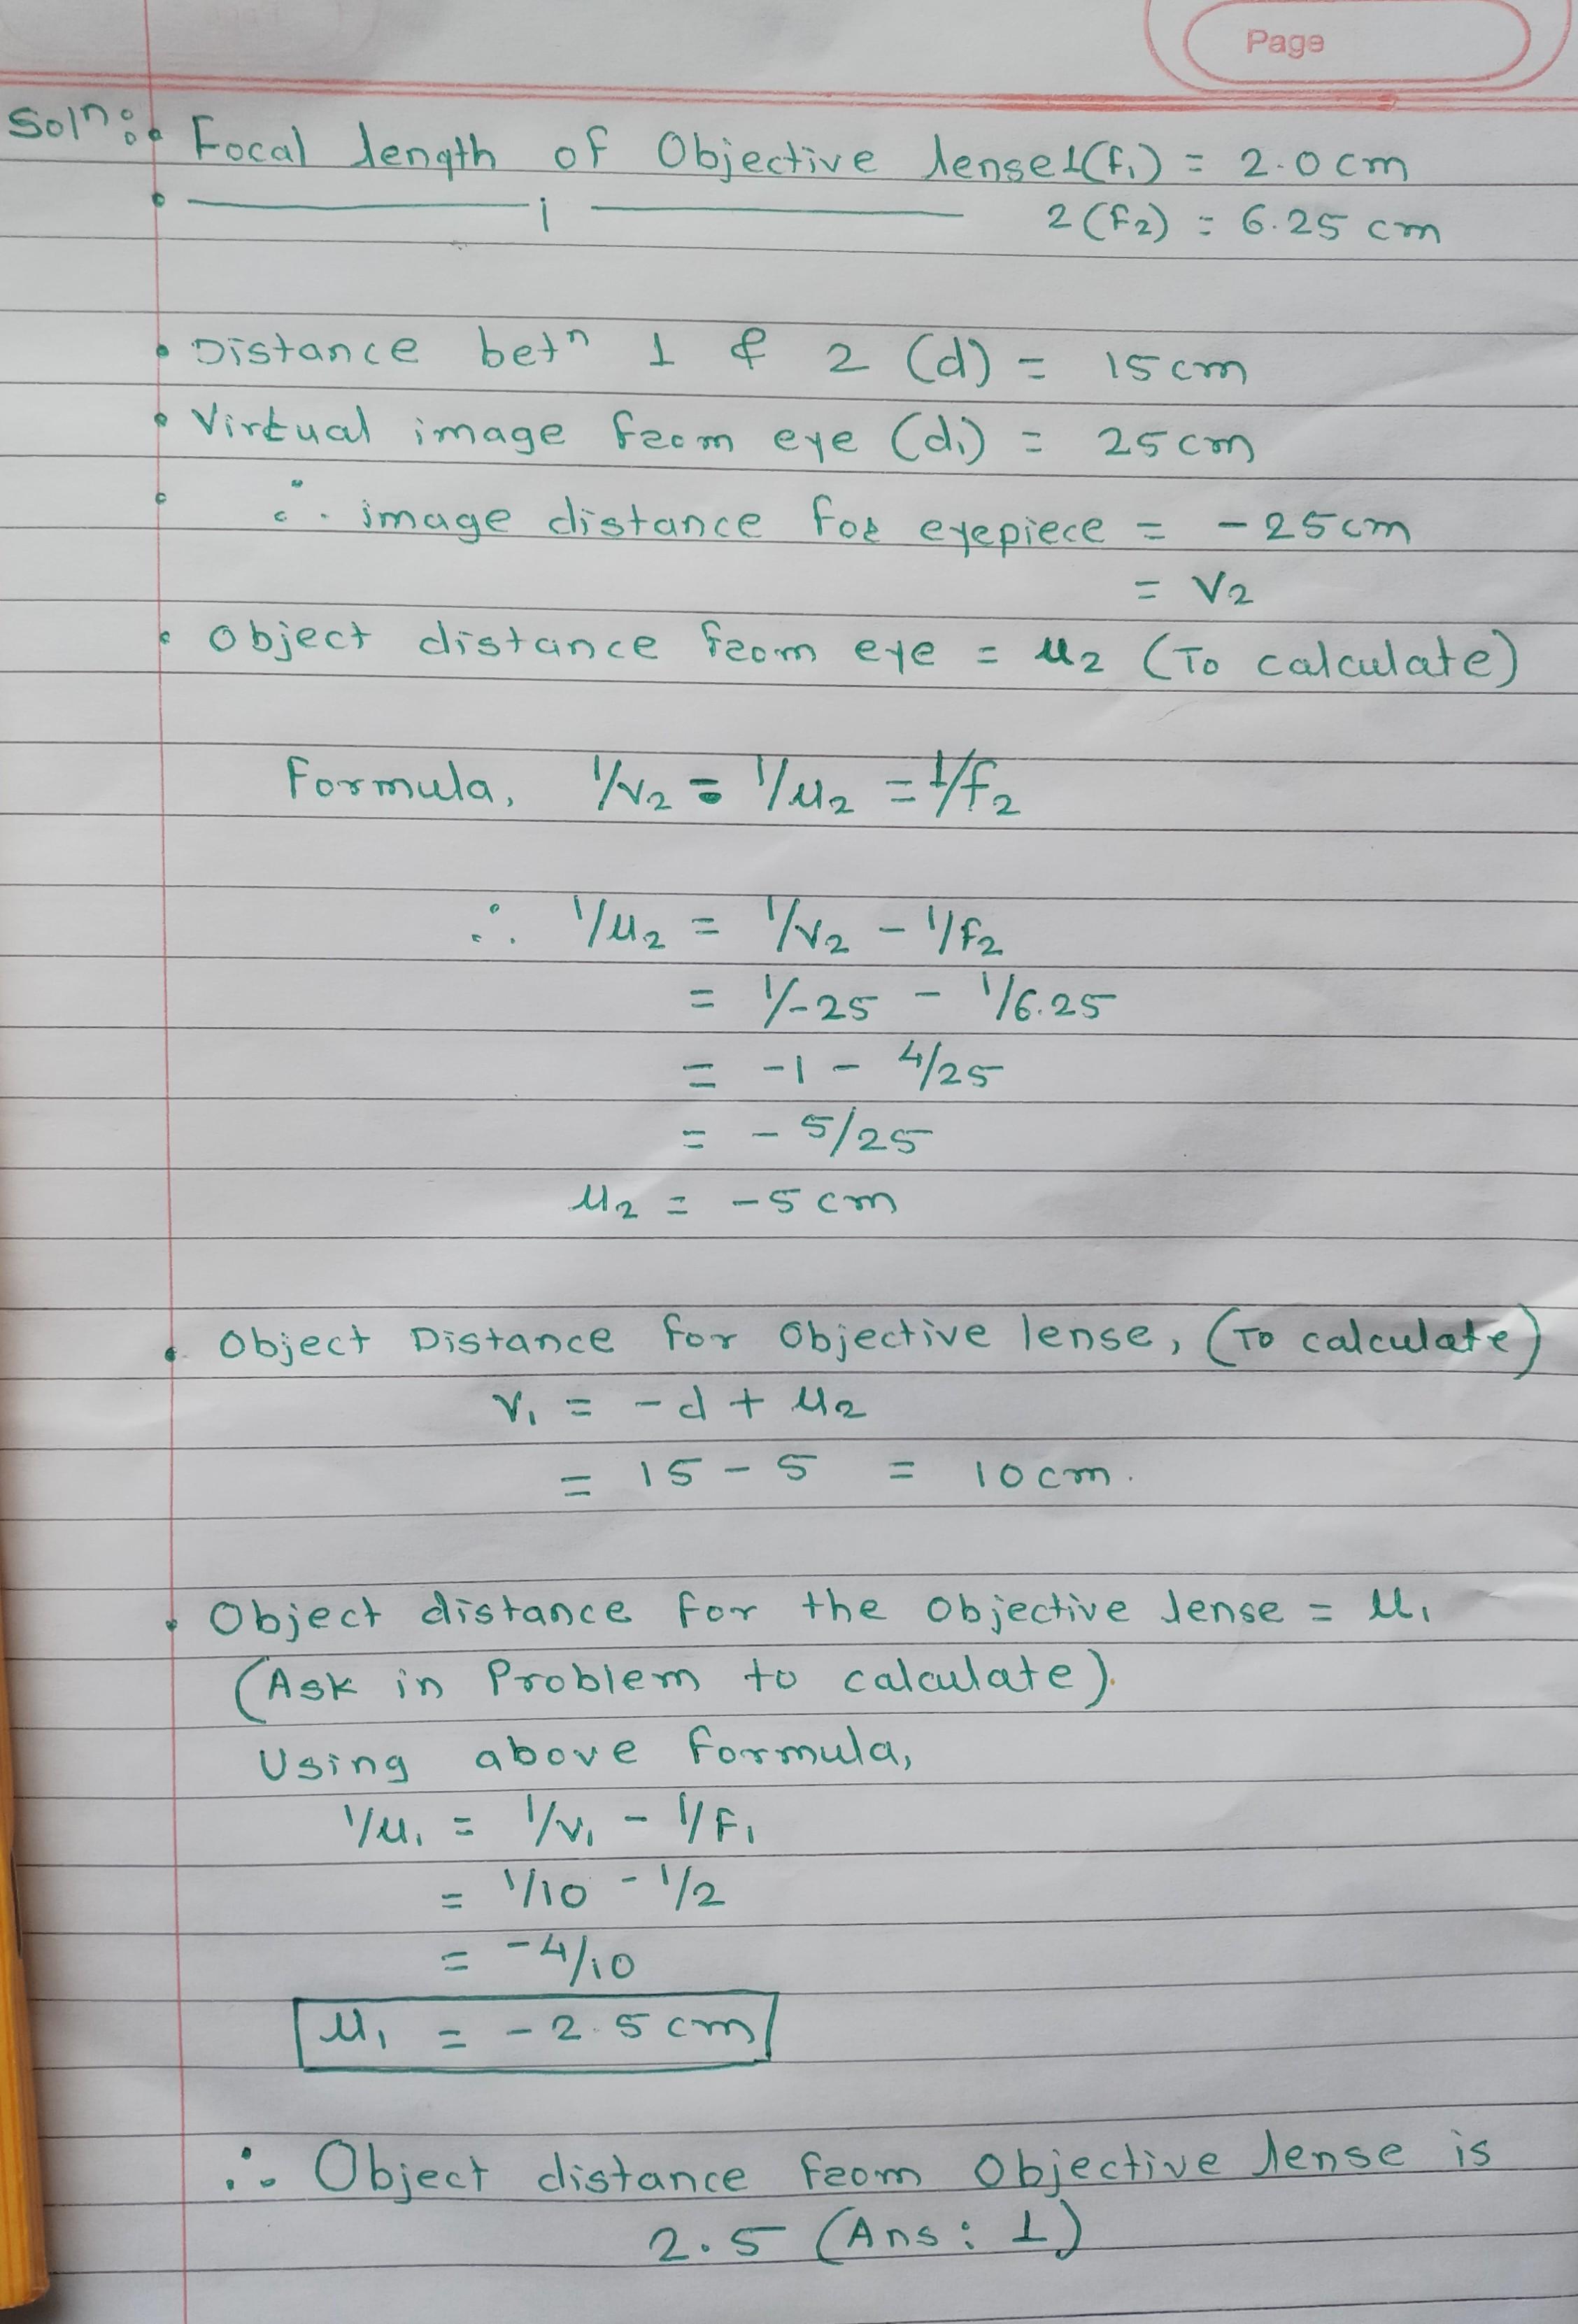 Page
Solⁿ: • Focal length of Objective lense1(f₁) = 2.0 cm
• ——— i ——— 2 (f₂) = 6.25 cm
• Distance betⁿ 1 & 2 (d) = 15 cm
• Virtual image from eye (d₁) = 25 cm
• ∴ image distance for eyepiece = - 25 cm
= V₂
• Object distance from eye = u₂ (To calculate)
Formula, 1/v₂ = 1/u₂ = 1/f₂
∴ 1/u₂ = 1/v₂ - 1/f₂
= 1/-25 - 1/6.25
= -1 - 4/25
= - 5/25
u₂ = - 5 cm
• Object Distance for Objective lense, (To calculate)
V₁ = - d + u₂
= 15 - 5 = 10 cm.
• Object distance for the Objective lense = u₁
(Ask in Problem to calculate).
Using above Formula,
1/u₁ = 1/v₁ - 1/f₁
= 1/10 - 1/2
= -4/10
u₁ = - 2.5 cm
∴ Object distance from Objective lense is
2.5 (Ans: 1)